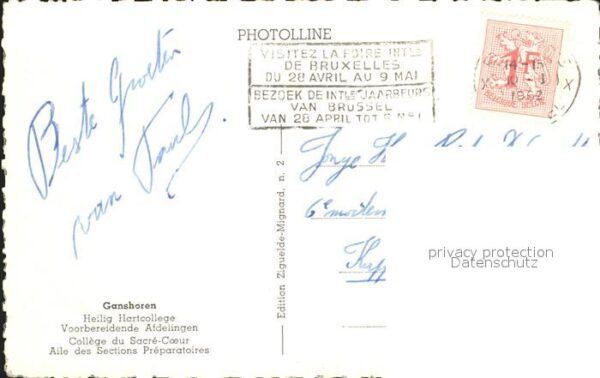 PHOTOLLINE
VISITEZ LA FOIRE INTLE
DE BRUXELLES
DU 28 AVRIL AU 9 MAI
BEZOEK DE INTLE JAARBEURS
VAN BRUSSEL
VAN 28 APRIL TOT 9 MEI
14-15
1962
1F
Beste Groeten
van Paul
Edition Ziguelde-Mignard, n. 2
Jonge H
6e
privacy protection
Datenschutz
Ganshoren
Heilig Hartcollege
Voorbereidende Afdelingen
Collège du Sacré-Cœur
Aile des Sections Préparatoires